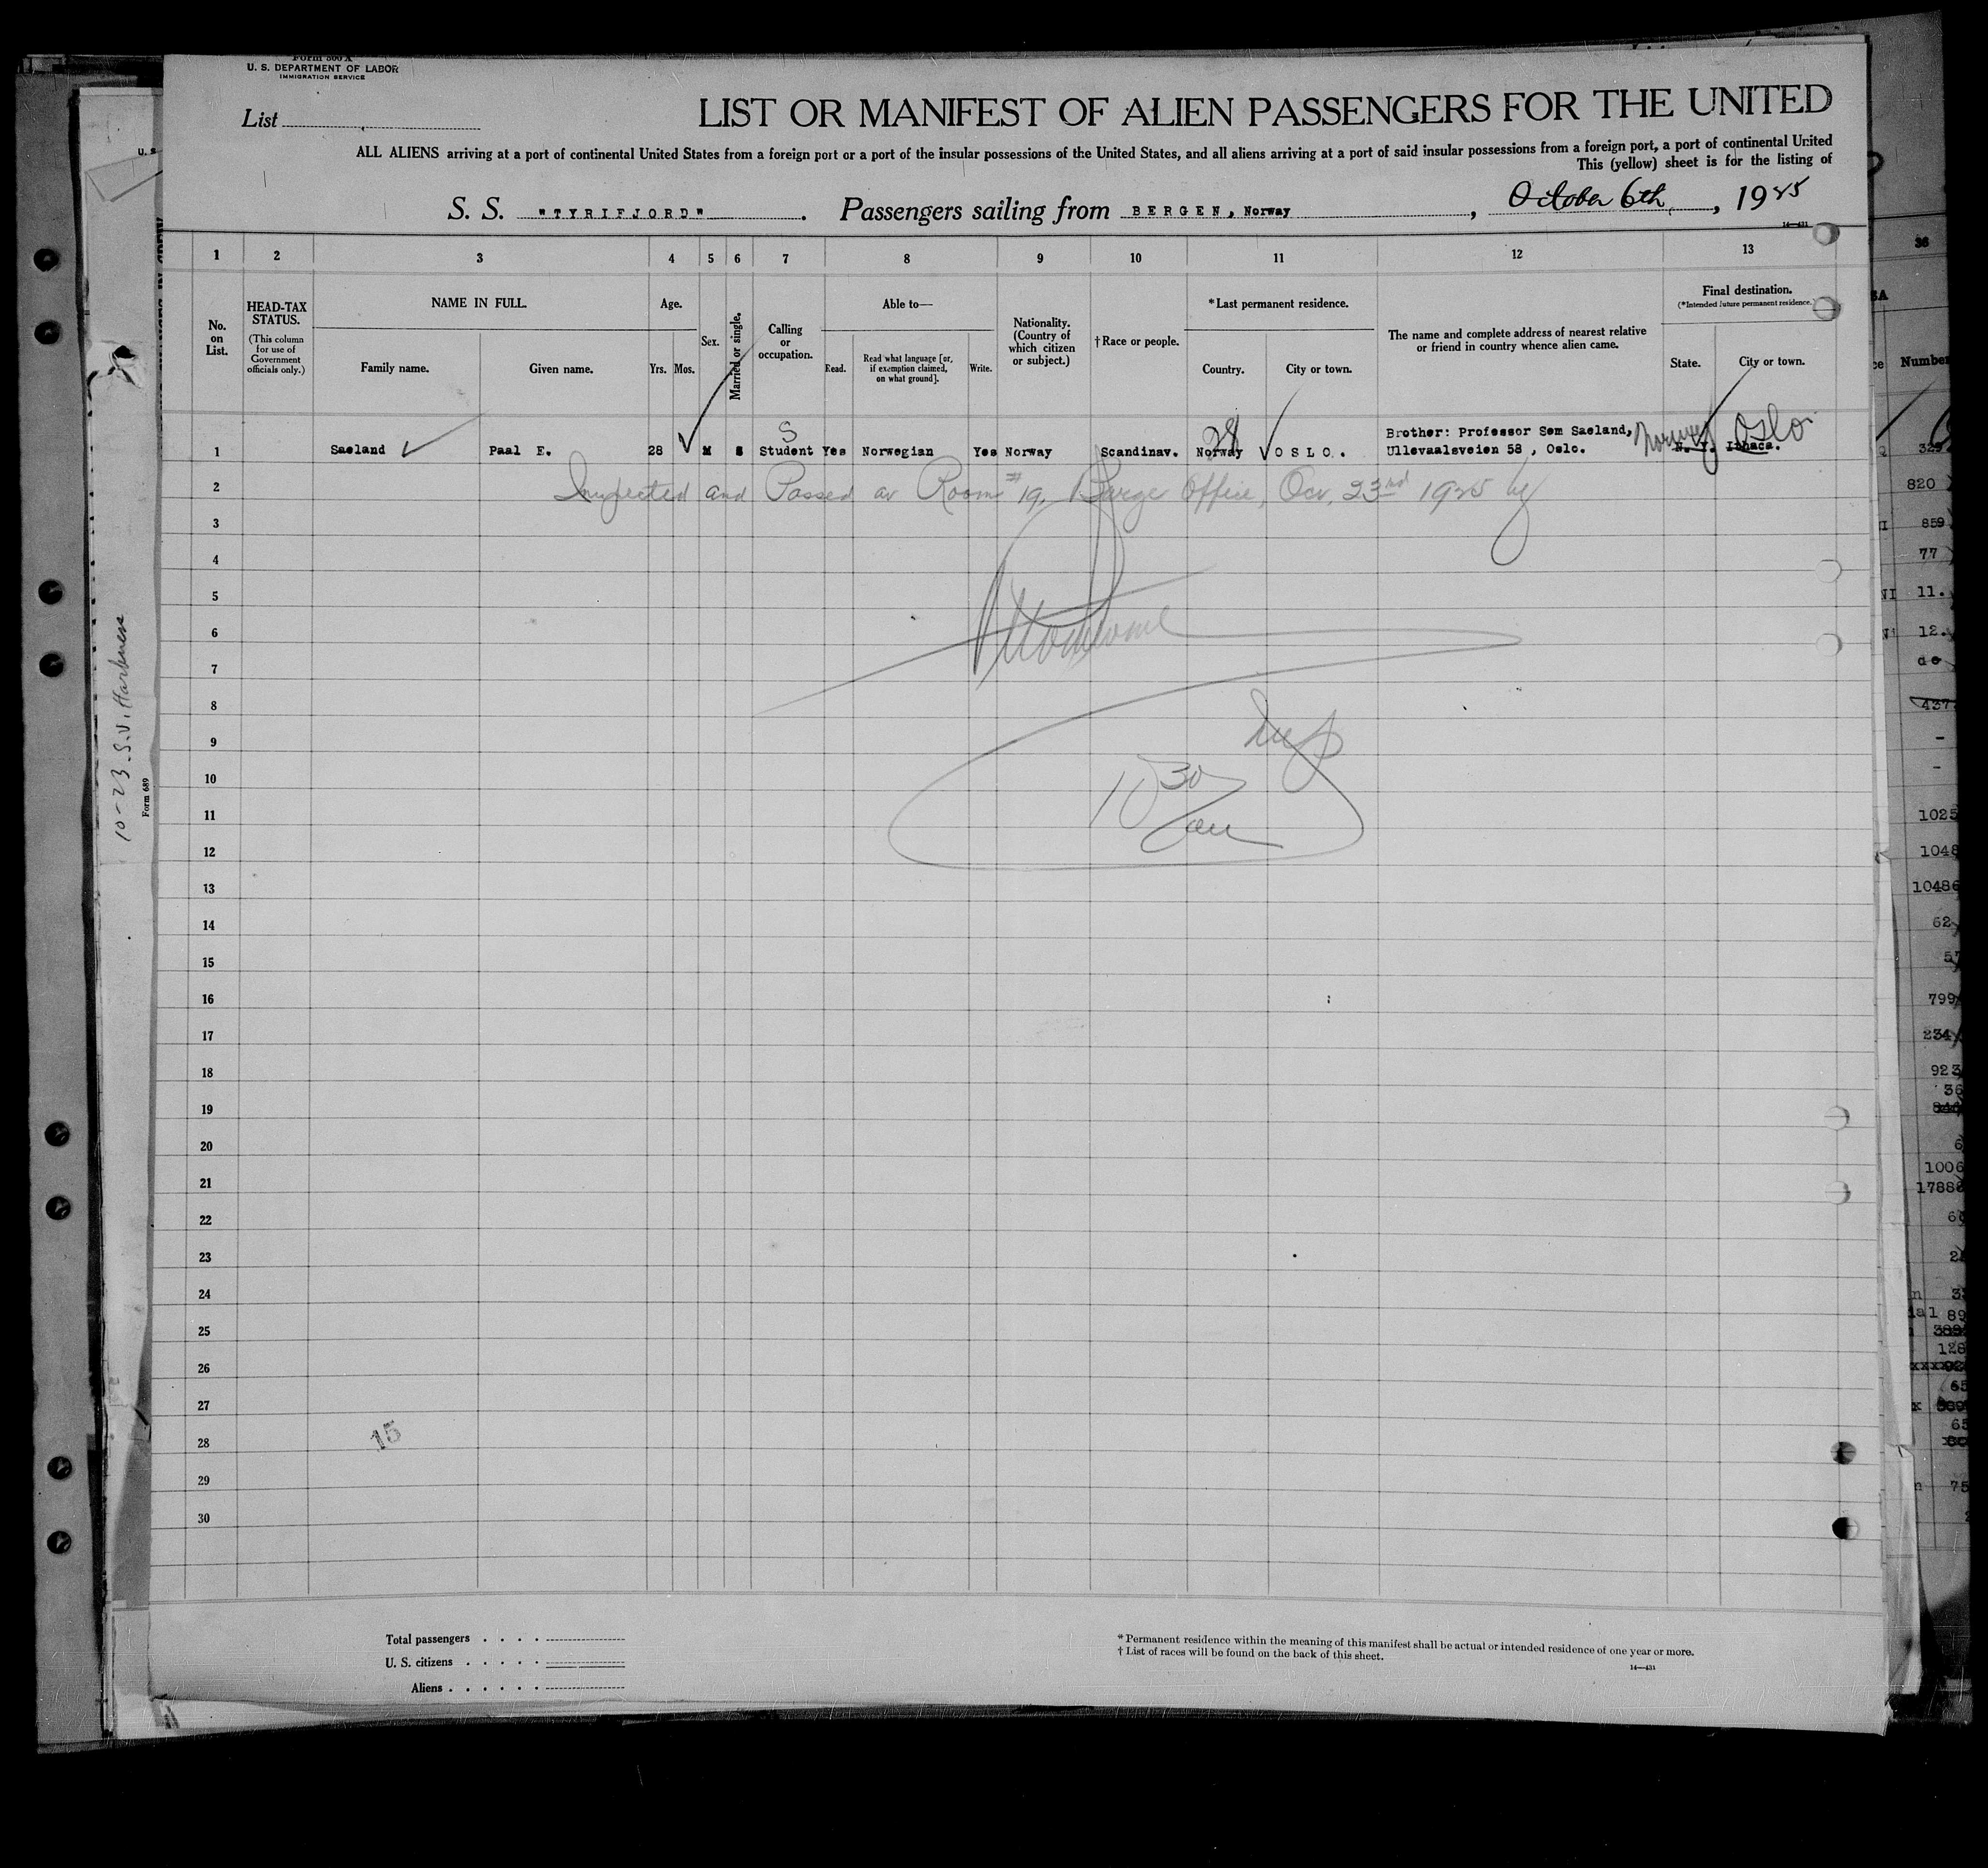 Form 500 A
U. S. DEPARTMENT OF LABOR
IMMIGRATION SERVICE
List
LIST OR MANIFEST OF ALIEN PASSENGERS FOR THE UNITED
ALL ALIENS arriving at a port of continental United States from a foreign port or a port of the insular possessions of the United States, and all aliens arriving at a port of said insular possessions from a foreign port, a port of continental United
This (yellow) sheet is for the listing of
S. S. "TYRIFJORD" . Passengers sailing from BERGEN, Norway , October 6th, , 1925
14—431
1 2 3 4 5 6 7 8 9 10 11 12 13
No. on List.
HEAD-TAX STATUS.
(This column for use of Government officials only.)
NAME IN FULL.
Family name.
Given name.
Age.
Yrs. Mos.
Sex.
Married or single.
Calling or occupation.
Able to—
Read.
Read what language [or, if exemption claimed, on what ground].
Write.
Nationality. (Country of which citizen or subject.)
† Race or people.
*Last permanent residence.
Country.
City or town.
The name and complete address of nearest relative or friend in country whence alien came.
Final destination.
(*Intended future permanent residence.)
State.
City or town.
S
28
Norway Oslo
Brother: Professor Sem Saeland,
1 Saeland Paal E. 28 M S Student Yes Norwegian Yes Norway Scandinav. Norway OSLO. Ullevaalsveien 58 , Oslo. N. Y. Ithaca.
2 Inspected and Passed at Room #19, Barge Office, Oct, 23rd 1925 by
3
4
5
6
7
8
9 Insp
10 10 30
11
12
13
14
15
16
17
18
19
20
21
22
23
24
25
26
27
28
15
29
30
Total passengers . . . .
U. S. citizens . . . . .
Aliens . . . . . .
* Permanent residence within the meaning of this manifest shall be actual or intended residence of one year or more.
† List of races will be found on the back of this sheet.
14—431
Form 689
36
Number
329
820
859
77
11.
12.
do
437
1025
1048
10486
62
799
234
923
36
1006
17886